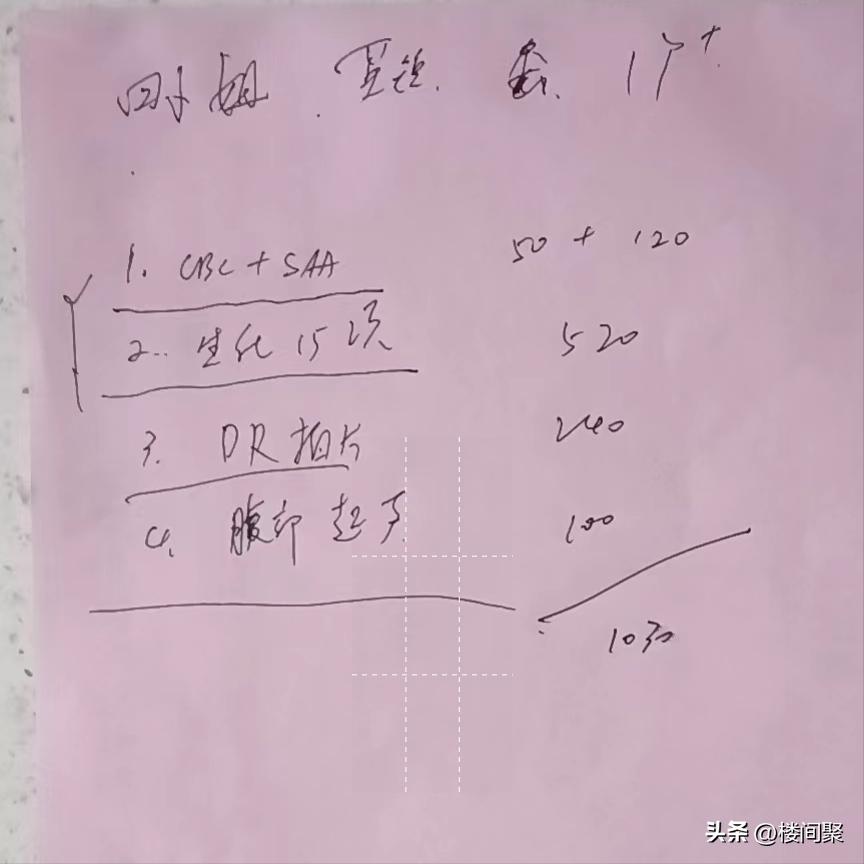 1. CBC + SAA 50 + 120
2. 生化 15 项 520
3. DR 拍片 240
4. 腹部超声 100
1030
头条 @楼间聚